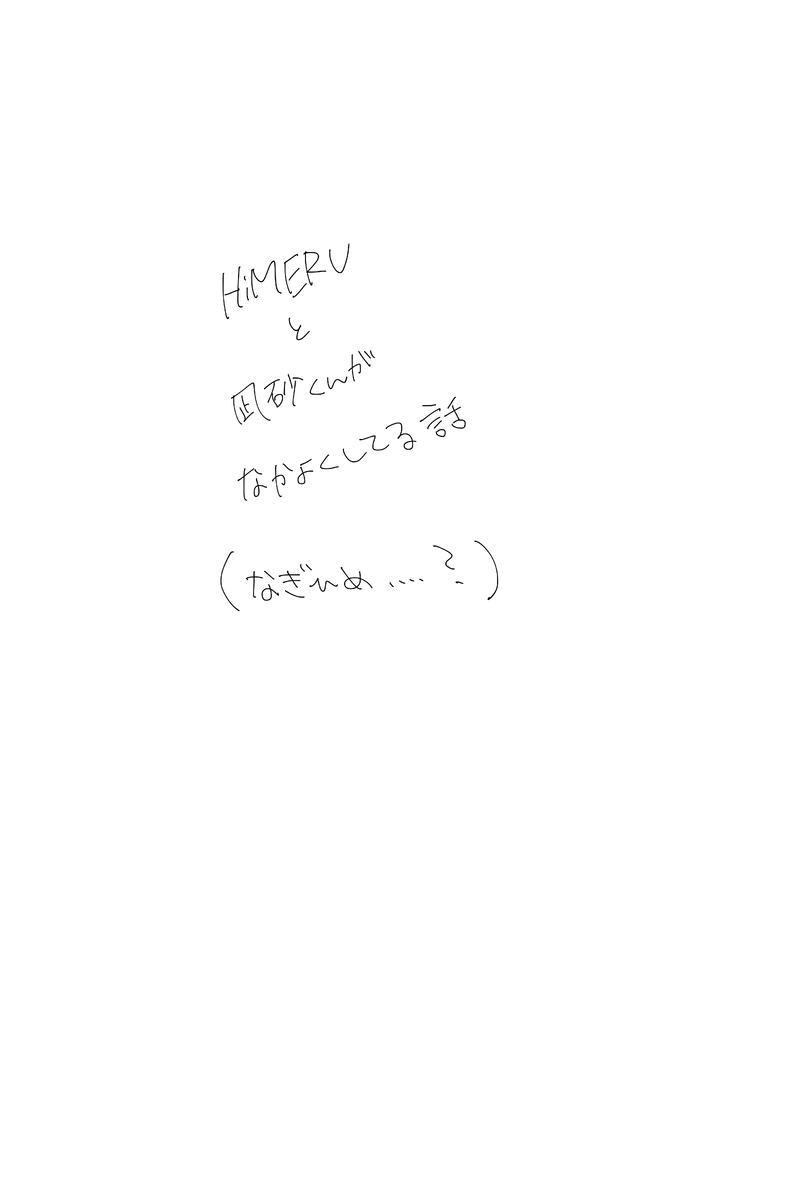 HiMERU
と
凪砂くんが
なかよくしてる話
(なぎひめ....?)